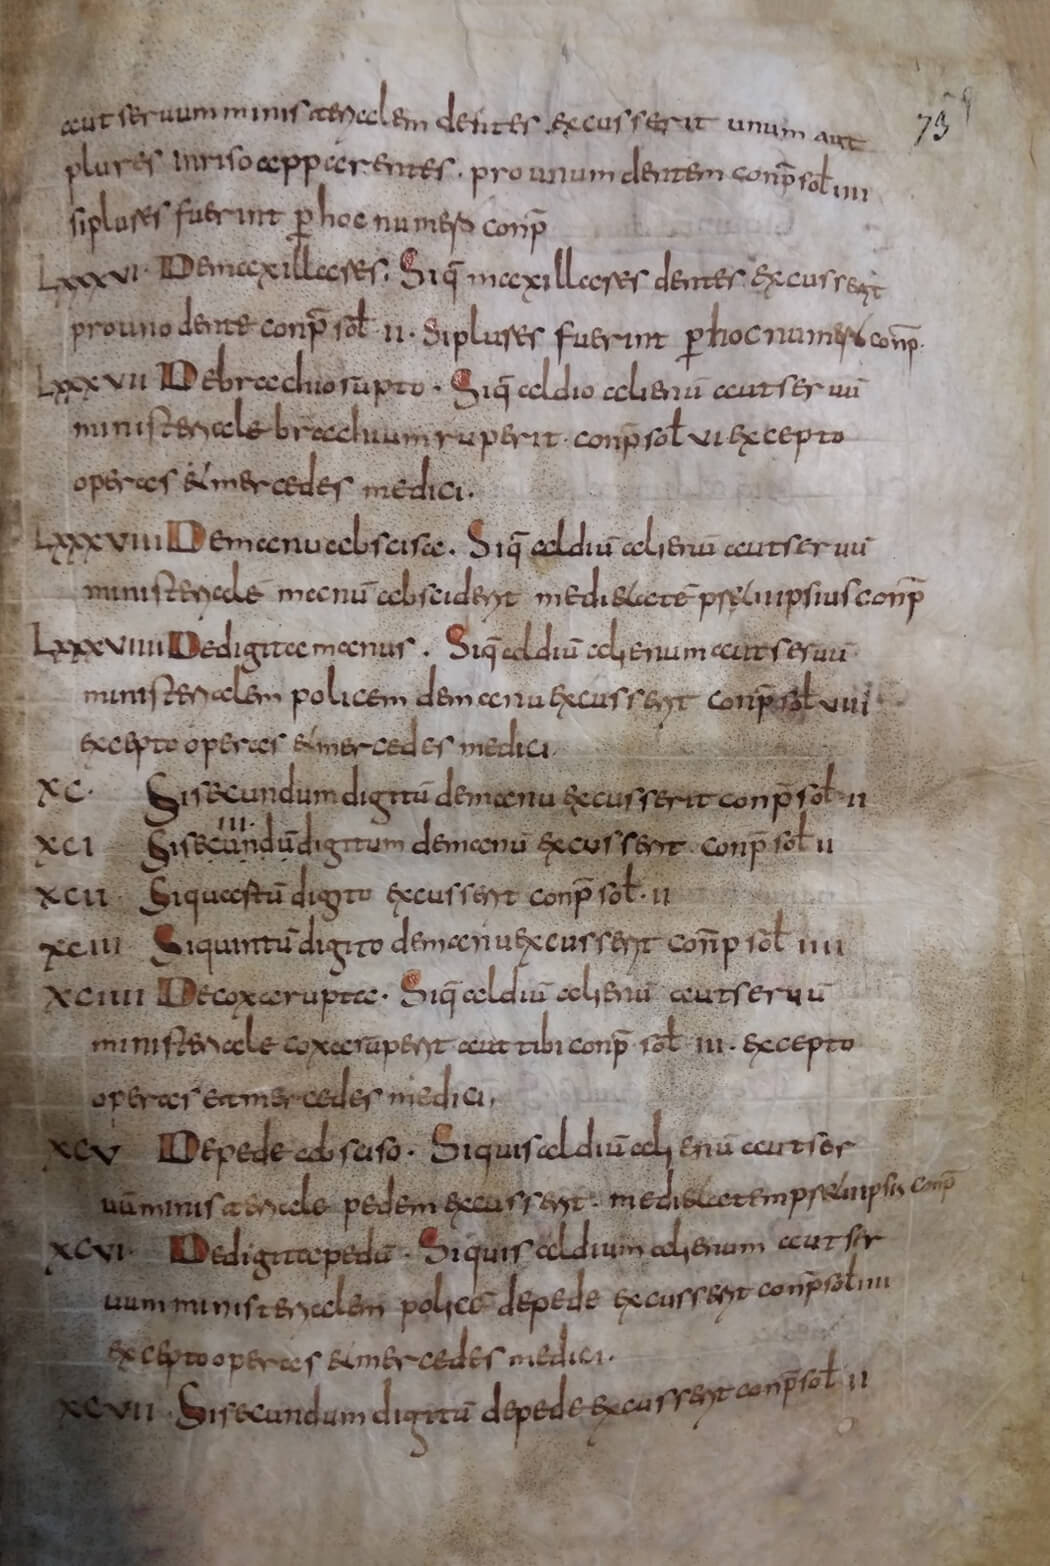 aut seruum ministerialem dentes excusserit unum aut
plures in riso apparentes. pro unum dentem conp̄ sol̄ iiii
si plures fuerint p̱ hoc numero conp̄
Lxxxvi. De maxillares. Siq̄ maxillares dentes excusserit
pro uno dente conp̄ sol̄ ii. Si plures fuerint p̱ hoc numero conp̄.
Lxxxvii De brachio rupto. Siq̄ aldio alienū aut seruū
ministeriale brachium ruperit. conp̄ sol̄ vi excepto
operas & mercedes medici.
Lxxxviii De manu abscisa. Siq̄ aldiū alienū aut seruū
ministeriale manū absciderit medietatē p̱tii ipsius conp̄
Lxxxviiii De digita manus. Siq̄ aldiū alienum aut seruū
ministerialem policem de manu excusserit conp̄ sol̄ viii
excepto operas & mercedes medici.
xc. Si secundum digitū de manu excusserit conp̄ sol̄ ii
iii.
xci Si secundū digitum de manū excusserit conp̄ sol̄ ii
xcii Si quartū digito excusserit conp̄ sol̄. ii
xciii Si quintū digito de manu excusserit con̄p sol̄ iiii
xciiii De coxa rupta. Siq̄ aldiū alienū aut seruū
ministeriale coxa ruperit aut tibi conp̄ sol̄ iii. excepto
operas et mercedes medici.
xcv De pede absciso. Si quis aldiū alienū aut ser
uū ministeriale pedem excusserit. medietatem p̱tii ipsius conp̄
xcvi. De digita pedū. Si quis aldium alienum aut ser
uum ministerialem police de pede excusserit conp̄ sol̄ iiii
excepto operas & mercedes medici.
xcvii. Si secundum digitū de pede excusserit conp̄ sol̄ ii
73